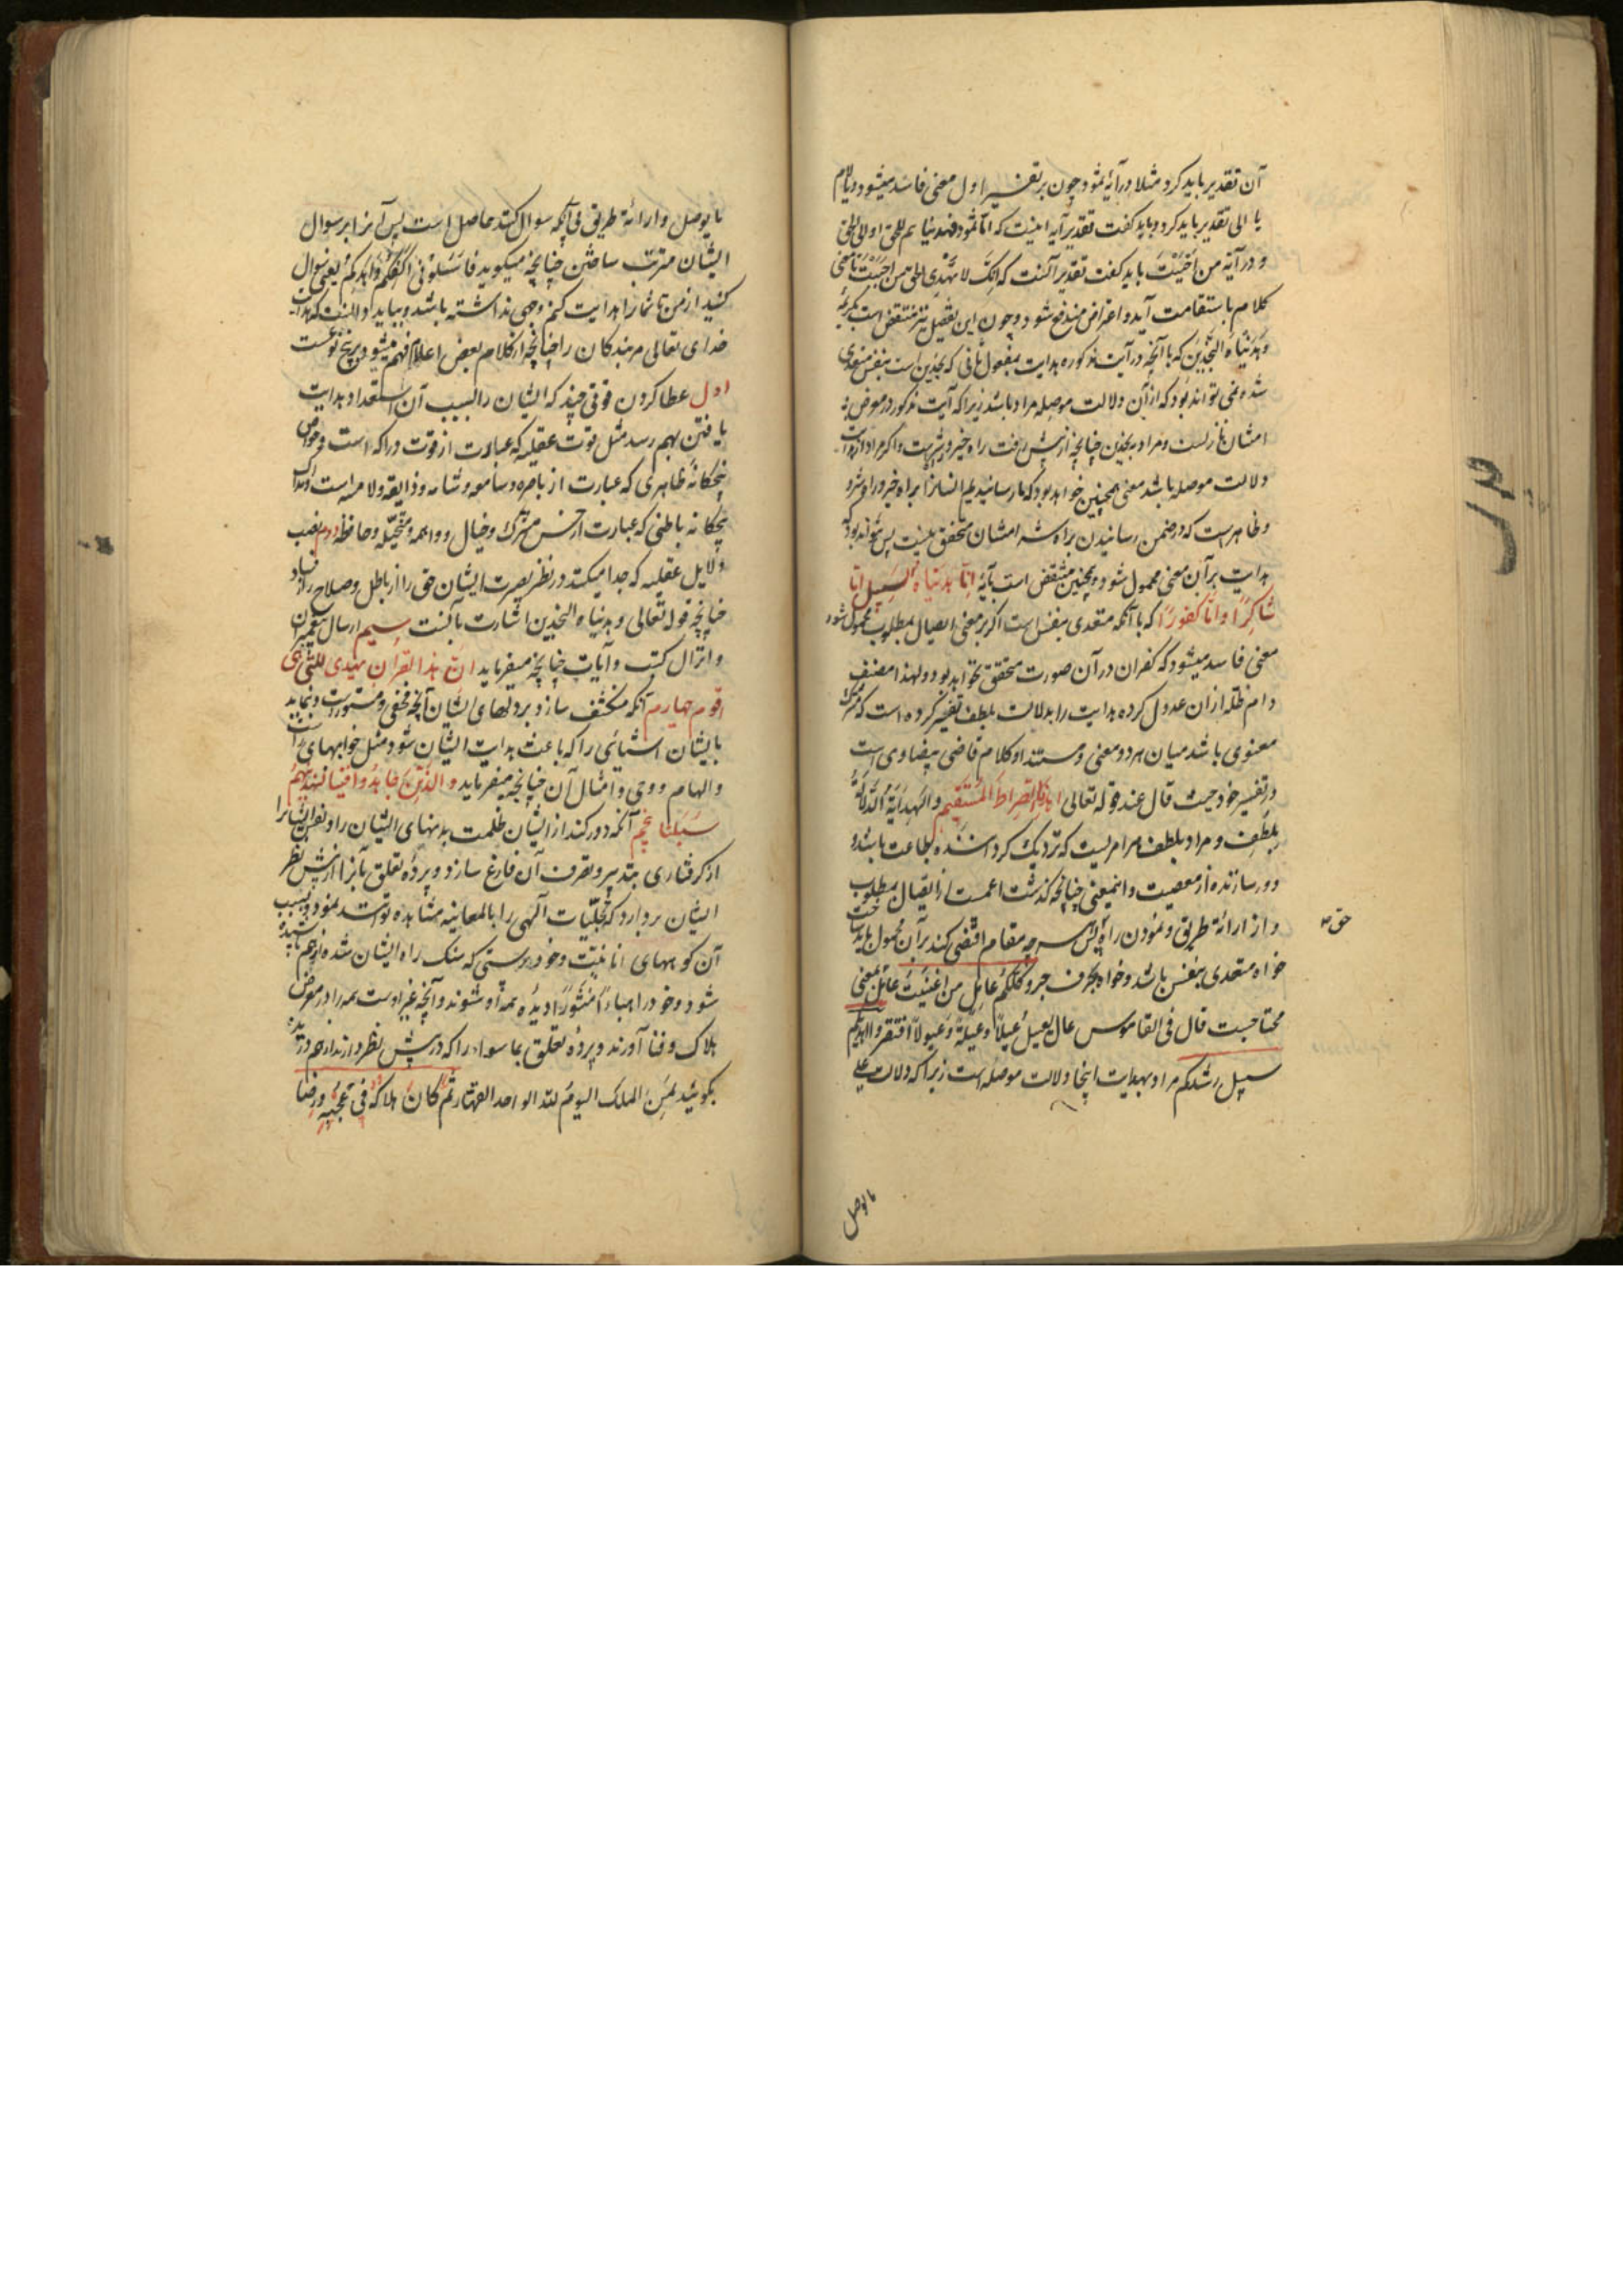 آن تقدیر باید کرد مثلا در آیهٔ ثمود چون بر تفسیر اول معنی فاسد میشود و با لام
یا الی تقدیر باید کرد و باید کفت تقدیر آیه اینست که اما ثمود فهدیناهم للحق او الی الحق
و در آیه من احببت باید کفت تقدیر آنست که انک لا تهدی الحق من احببت تا معنی
کلام باستقامت آید و اعتراض مندفع شود و چون این تفصیل نیز منتقض است بکریمه
وهدیناه النجدین که با آنچه در آیت مذکوره هدایت بمفعول ثانی که نجدین است بنفس متعدی
شده نمی تواند بود که از آن دلالت موصله مراد باشد زیرا که آیت مذکور در معرض
امتنان نازلست و مراد بنجدین چنانچه از پیش رفت راه خیر و شر است و اکر مراد از هدایت
دلالت موصله باشد معنی همچنین خواهد بود که ما رسانیدیم انسانرا براه خیر و راه شر و
و ظاهر است که در ضمن رسانیدن براه شر امتنان متحقق نیست پس نتواند بود که
هدایت بر آن معنی محمول شود و همچنین منتقض است بآیهٔ انا هدیناه السبیل اما
شاکرًا و اما کفورًا که با آنکه متعدی بنفس است اکر بر معنی ایصال بمطلوب محمول شود
معنی فاسد میشود که کفران در آن صورت متحقق نخواهد بود و لهذا مصنف
دام ظله از ان عدول کرده هدایت را بدلالت بلطف تفسیر کرده است که مشترک
معنوی باشد میان هر دو معنی و مستند او کلام قاضی بیضاوی است
در تفسیر خود حیث قال عند قوله تعالی اهدنا الصراط المستقیم والهدایة الدلالة
بلطف و مراد بلطف هر امریست که نزدیک کرداننده بطاعت باشد و
دور سازنده از معصیت و اینمعنی چنانچه کذشت اعمست از ایصال بمطلوب
و از ارائهٔ طریق و نمودن راه پس هر چه مقام اقتضی کند بر آن محمول باید ساخت
حق م
خواه متعدی بنفس باشد و خواه بحرف جر وکلکم عائل من اغنیت عائل بمعنی
محتاجست قال فی القاموس عال یعیل عیلاً وعیلةً وعیولاً افتقر و اهدیکم
سبیل رشدکم مراد بهدایت اینجا دلالت موصله است زیرا که دلالت علی
ما یوصل
ما یوصل و ارائهٔ طریق بی آنکه سوال کنند حاصل است پس آنرا بر سوال
ایشان مترتب ساختن چنانچه میکوید فاسئلونی اکفکم واهدکم یعنی سوال
کنید از من تا شما را هدایت کنم وجهی نداشته باشد و بباید دانست که هدایت
خدای تعالی مر بندکان را چنانچه از کلام بعض اعلام فهم میشود بر پنج نوعست
اول عطا کردن قوتی چند که ایشان را بسبب آن استعداد هدایت
یافتن بهم رسد مثل قوت عقلیه که عبارت از قوت دراکه است و حواس
پنجکانهٔ ظاهری که عبارت از باصره و سامعه و شامه و ذایقه و لامسه است و حواس
پنجکانه باطنی که عبارت از حس مشترک و خیال و واهمه و متخیّله و حافظه دوم نصب
دلایل عقلیه که جدا میکند در نظر بصیرت ایشان حق را از باطل و صلاح را از فساد
چنانچه قوله تعالی وهدیناه النجدین اشارت بآنست سیم ارسال پیغمبران
و انزال کتب و آیات چنانچه میفرماید ان هذا القران یهدی للتی هی
اقوم چهارم آنکه منکشف سازد بر دلهای ایشان آنچه مخفی و مستورست و نماید
بایشان اشیائی را که باعث هدایت ایشان شود مثل خوابهای راست
و الهام و وحی و امثال آن چنانچه میفرماید والذین جاهدوا فینا لنهدینهم
سبلنا پنجم آنکه دور کند از ایشان ظلمت بدنهای ایشان را و نفس ایشانرا
از کرفتاری بتدبیر و تصرف آن فارغ سازد و پردهٔ تعلق بآنرا از پیش نظر
ایشان بردارد که تجلّیات آلهی را بالمعاینه مشاهده توانند نمود و بسبب
آن کوههای انانیّت و خودپرستی که سنک راه ایشان شده از هم پاشیده
شود و خود را هباءً منثورًا دیده همه او شوند و آنچه غیر اوست همه را در معرض
هلاک و فنا آورند و پردهٔ تعلق بما سوا را که در پیش نظر دارند از هم دریده
بکویند لمن الملک الیوم لله الواحد القهار ثم کان هلاکه فی عجبه ورضا